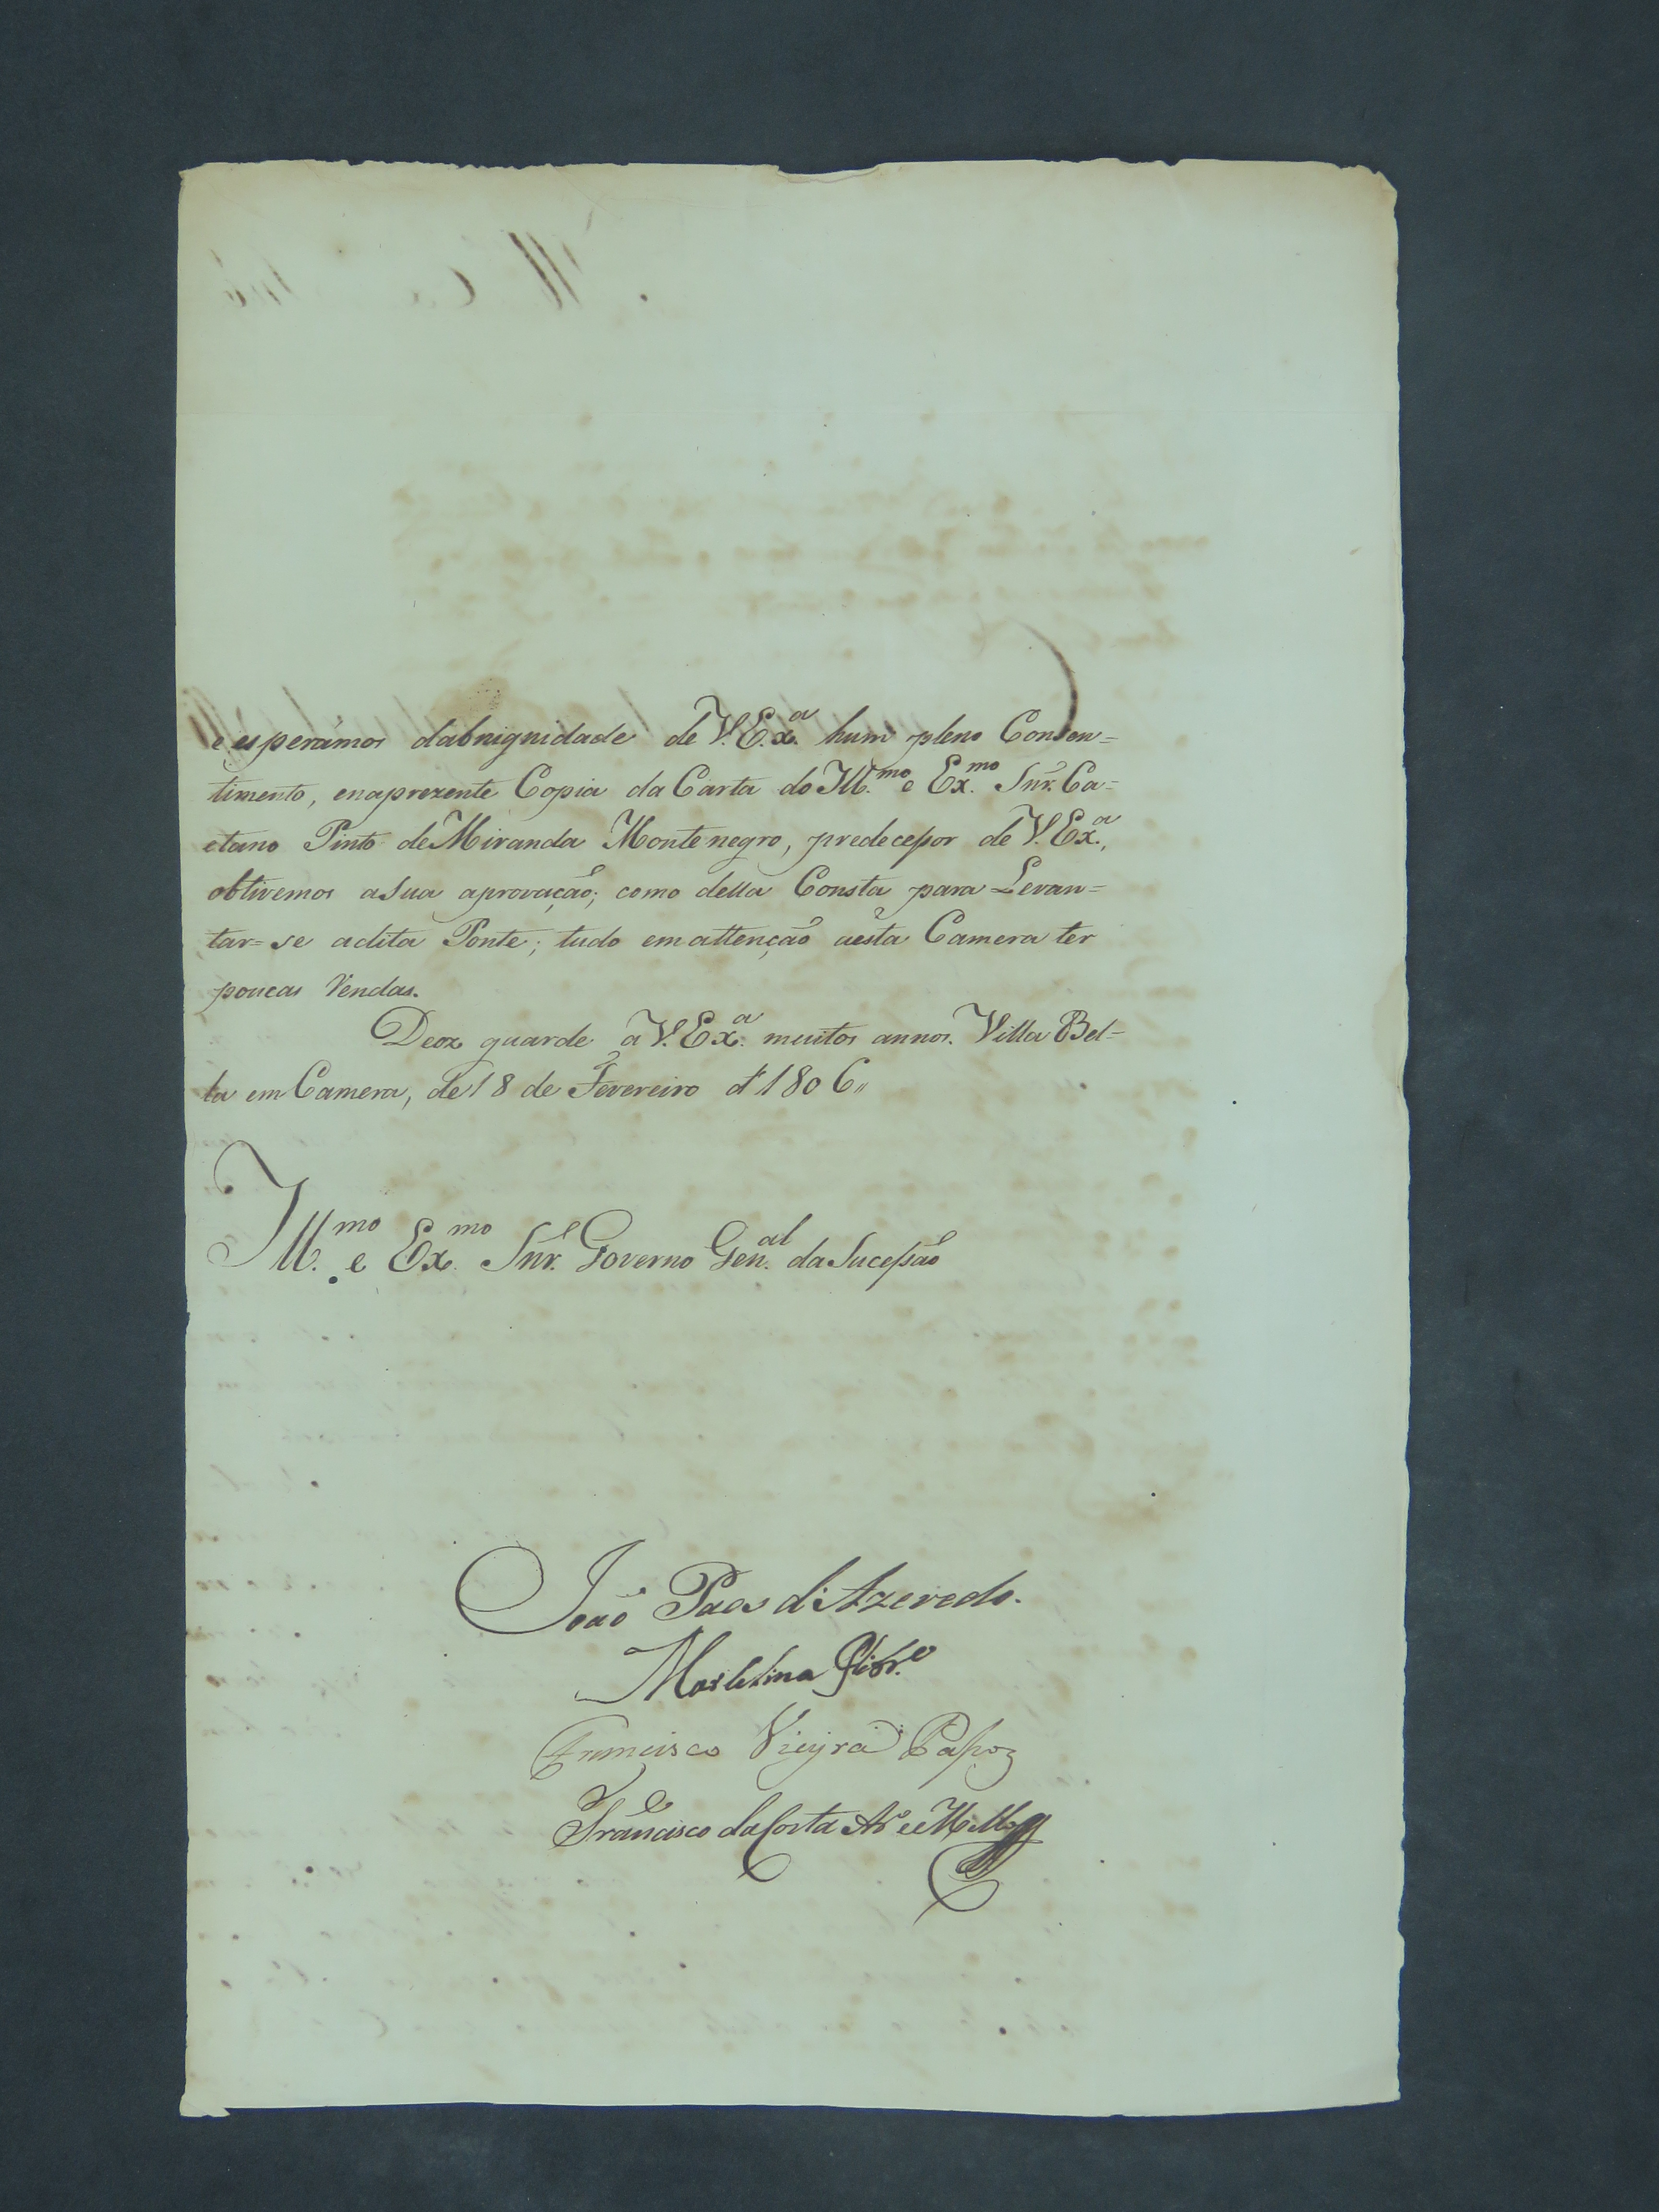 e esperâmos dabnignidade de V. Ex.ª hum pleno Consen=
timento, enaprezente Copia da Carta do Ill.mo e Ex.mo Snr. Ca=
etano Pinto de Miranda Montenegro, predecessor de V. Ex.ª,
obtivemos asua aprovação; como della Consta para Levan=
tar=se adita Ponte; tudo emattenção aesta Camera ter
poucas Rendas.
Deoz guarde a V. Ex.ª muitos annos. Villa Bel=
la em Camera, de 18 de Fevereiro d' 1806,,
Ill.mo e Ex.mo Snr. Governo Gen.al da Sucessão
João Paes d'Azevedo.
Francisco Vieyra Passoz
Francisco da Costa